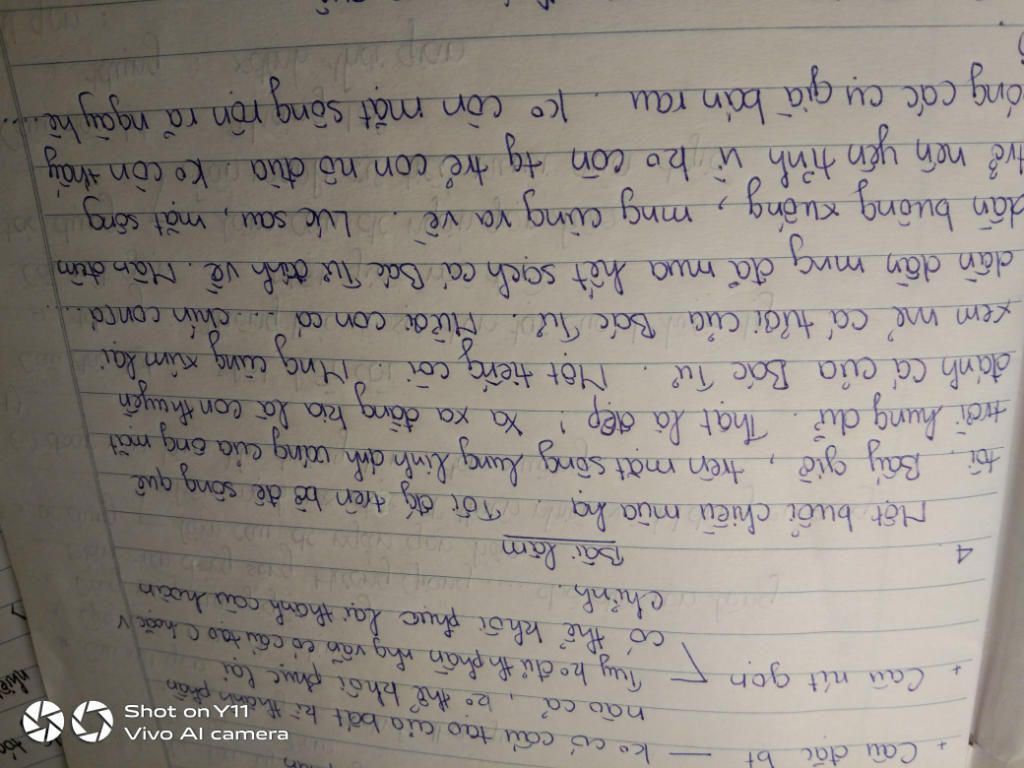 + Câu đặc bt — ko có cấu tạo của bất kì thành phần
nào cả, ko thể khôi phục lại
+ Câu rút gọn Tuy ko đủ th phần nhg vẫn có cấu tạo C hoặc V
có thể khôi phục lại thành câu hoàn
chỉnh.
4 Bài làm
Một buổi chiều mùa hạ. Tôi trên bờ đê sông quê
tôi. Bây giờ, trên mặt sông lung linh ánh vàng của ông mặt
trời hung dữ. Thật là đẹp! Xa xa đằng kia là con thuyền
đánh cá của Bác Tư. Một tiếng còi Mng cùng xúm lại
xem mẻ cá tươi của Bác Tư. Mười con cá... chín con cá...
dần dần mng đã mua hết sạch cá Bác Tư đánh về. Màn đêm
dần buông xuống, mng cùng ra về. Lúc sau, mặt sông
trở nên yên tĩnh vì ko còn tg trẻ con nô đùa. Ko còn thấy
các cụ già bán rau. Ko còn mặt sông rộn rã ngày hè...
Shot on Y11
Vivo AI camera